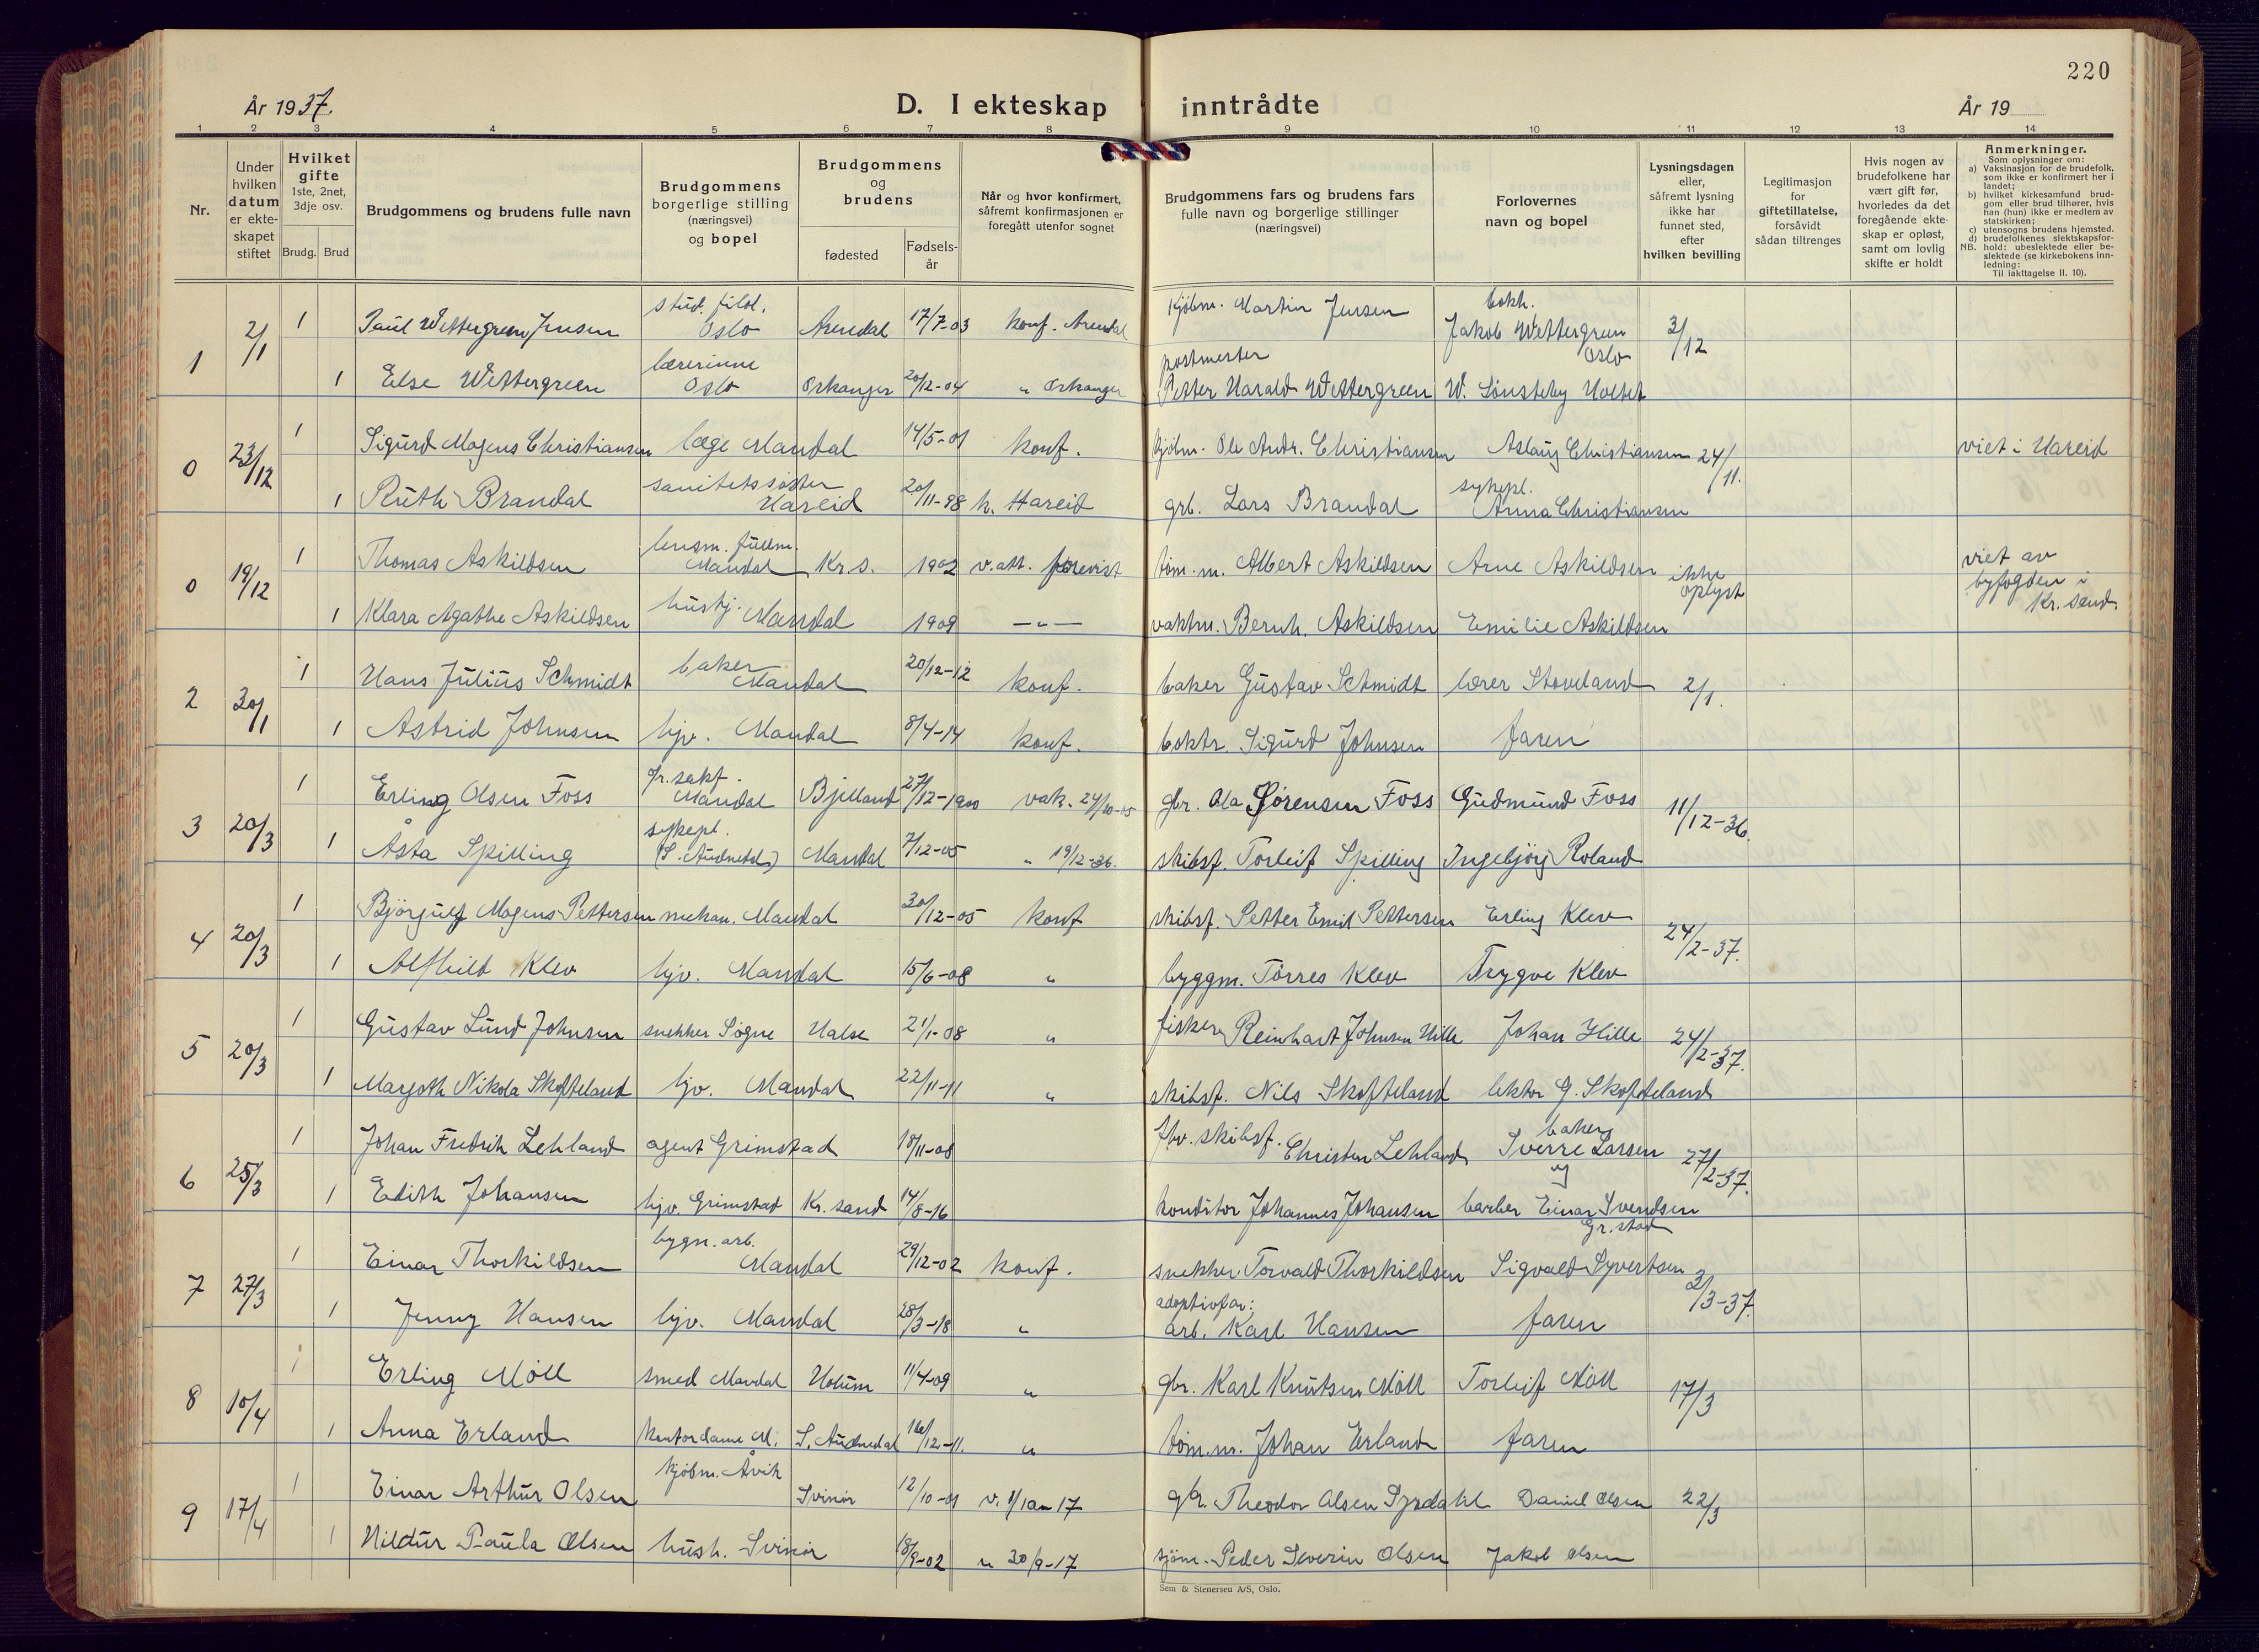 220
År 1937.
D. I ekteskap inntrådte
År 19
1 2 3 4 5 6 7 8 9 10 11 12 13 14
Nr.
Under hvilken datum er ekteskapet stiftet
Hvilket gifte 1ste, 2net, 3dje osv.
Brudg. Brud
Brudgommens og brudens fulle navn
Brudgommens borgerlige stilling (næringsvei) og bopel
Brudgommens og brudens
fødested
Fødsels-år
Når og hvor konfirmert, såfremt konfirmasjonen er foregått utenfor sognet
Brudgommens fars og brudens fars fulle navn og borgerlige stillinger (næringsvei)
Forlovernes navn og bopel
Lysningsdagen eller, såfremt lysning ikke har funnet sted, efter hvilken bevilling
Legitimasjon for giftetillatelse, forsåvidt sådan tiltrenges
Hvis nogen av brudefolkene har vært gift før, hvorledes da det foregående ekteskap er opløst, samt om lovlig skifte er holdt
Anmerkninger.
Som oplysninger om:
a) Vaksinasjon for de brudefolk, som ikke er konfirmert her i landet;
b) hvilket kirkesamfund brudgom eller brud tilhører, hvis han (hun) ikke er medlem av statskirken;
c) utensogns brudens hjemsted.
d) brudefolkenes slektskapsforhold: ubeslektede eller beslektede (se kirkebokens innledning:
NB.
Til iakttagelse II. 10).
1 2/1 1 Paul Wettergreen Jensen stud. filol. Oslo Arendal 17/7-03 konf. Arendal Kjøbm. Martin Jensen bokh. Jakob Wettergreen Oslo 3/12
1 Else Wettergreen lærerinne Oslo Orkanger 20/12-04 " Orkanger postmester Petter Harald Wettergreen W. Sønsteby Holtet
0 23/12 1 Sigurd Mogens Christiansen læge Mandal 14/5-01 konf. kjøbm. Ole Andr. Christiansen Aslaug Christiansen 24/11. viet i Hareid
1 Ruth Brandal sanitetssøster Hareid 20/11-98 k. Hareid grb. Lars Brandal sykepl. Anna Christiansen
0 19/12 1 Thomas Askildsen lensm. fullm. Mandal Kr.s. 1902 v.att. forevist tøm. m. Albert Askildsen Arne Askildsen ikke oplyst viet av byfogden i Kr. sand.
1 Klara Agathe Askildsen hushj. Mandal 1909 —"— vaktm. Bernh. Askildsen Emilie Askildsen
2 30/1 1 Hans Julius Schmidt baker Mandal 20/12-12 konf. baker Gustav Schmidt lærer Stoveland 2/1.
1 Astrid Johnsen hjv. Mandal 8/4-14 konf. boktr. Sigurd Johnsen faren
3 20/3 1 Erling Olsen Foss fr. sekf. Mandal Bjelland 27/12-1900 vak. 24/10-05 gbr. Ola Sørensen Foss Gudmund Foss 11/12-36.
1 Åsta Spilling sykepl. (S. Audnedal) Mandal 7/12-05 " 19/12-36. skibsf. Torleif Spilling Ingebjørg Roland
4 20/3 1 Bjørgulf Mogens Pettersen mekan. Mandal 30/12-05 konf skibsf. Petter Emil Pettersen Erling Klev 24/2-37.
1 Alfhild Klev hjv. Mandal 15/6-08 " byggm. Tørres Klev Trygve Klev
5 20/3 1 Gustav Lund Johnsen snekker Søgne Halse 21/1-08 " fisker Reinhart Johnsen Hille Johan Hille 24/2-37.
1 Margoth Nikola Skofteland hjv. Mandal 22/11-11 " skibsf. Nils Skofteland lektor G. Skofteland
6 25/3 1 Johan Fredrik Lehland agent Grimstad 18/11-08 fhv. skibsf. Christen Lehland baker Sverre Larsen og 27/2-37.
1 Edith Johansen hjv. Grimstad Kr. sand 14/8-16 konditor Johannes Johansen barber Einar Svendsen Gr.stad
7 27/3 1 Einar Thorkildsen bygn. arb. Mandal 29/12-02 konf. snekker Torvald Thorkildsen Sigvald Syvertsen 2/3-37.
1 Jenny Hansen hjv. Mandal 28/3-18 " adoptivfar: arb. Karl Hansen faren
8 10/4 1 Erling Møll smed Mandal Holum 11/4-09 " gbr. Karl Knutsen Møll Torleif Møll 17/3
1 Anna Erland kontordame M. S. Audnedal 16/12-11. " tøm.m. Johan Erland faren
9 17/4 1 Einar Arthur Olsen kjøbm. Åvik Svinør 12/10-01 v. gbr. Theodor Olsen Daniel Olsen 22/3
1 Hildur Paula Olsen hush. Svinør 18/9-02 " 30/9-17 sjøm. Peder Severin Olsen Jakob Olsen
Sem & Stenersen A/S, Oslo.